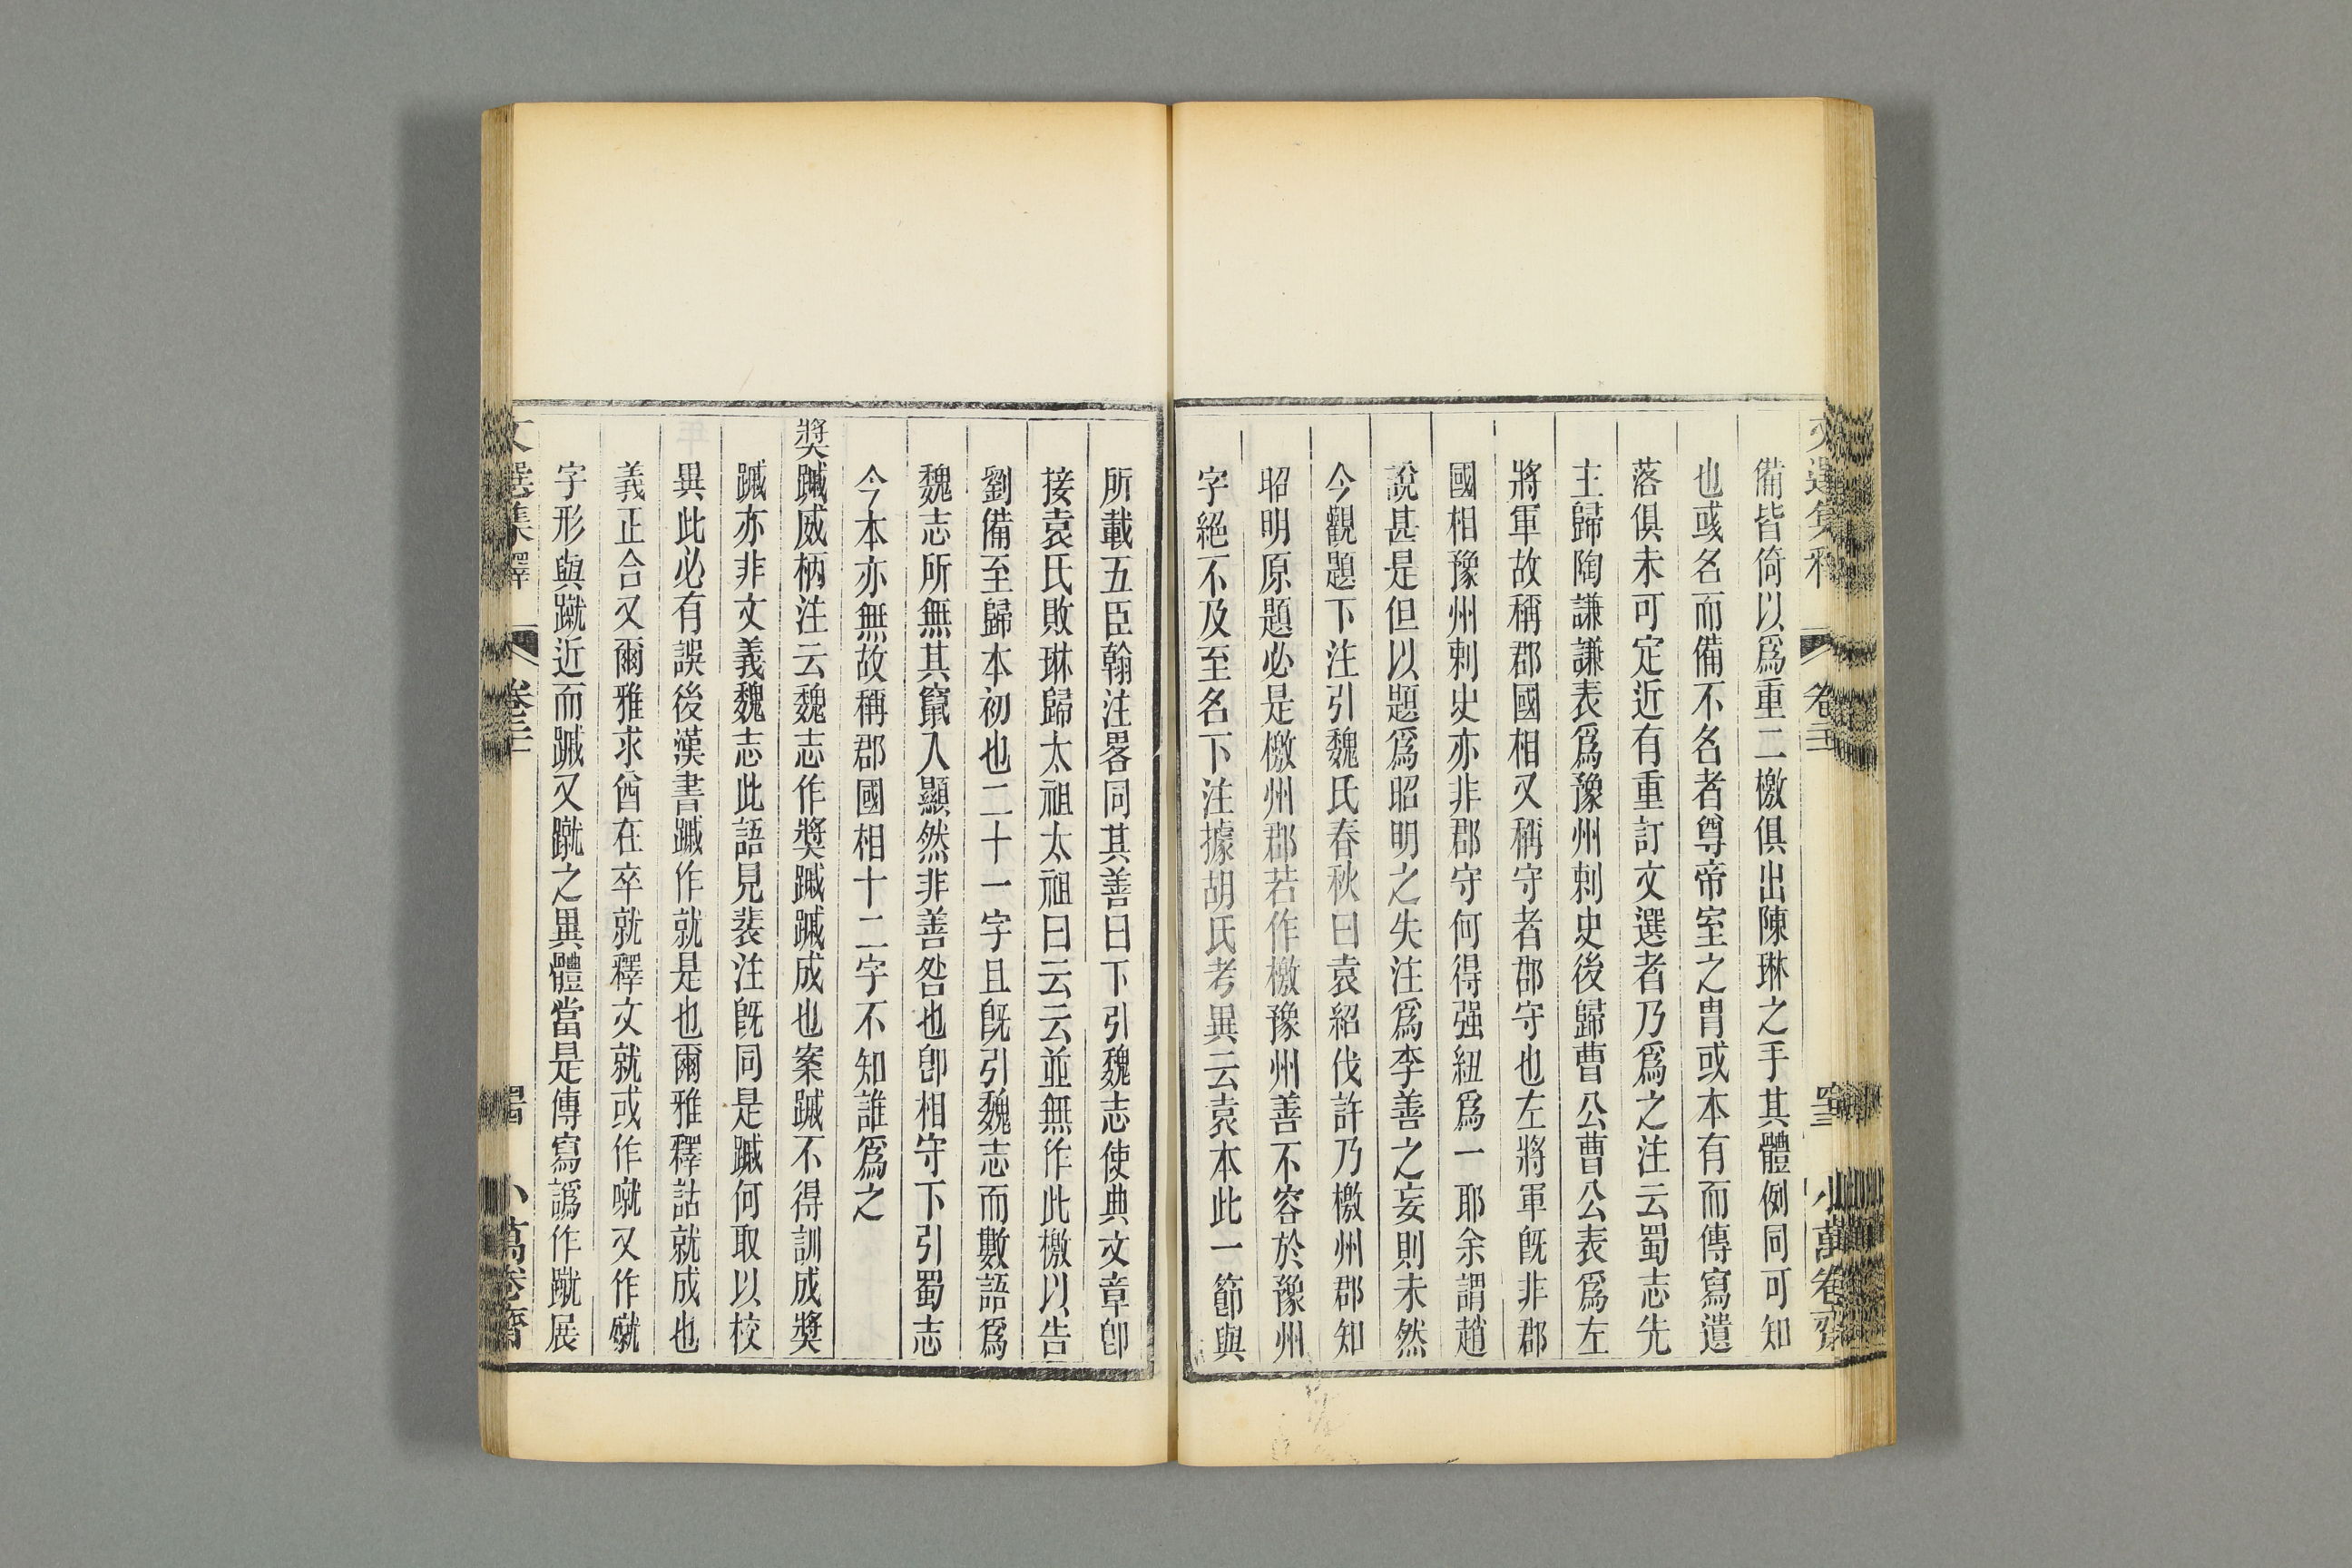 備皆倚以爲重二檄俱出陳琳之手其體例同可知
也彧名而備不名者尊帝室之胄或本有而傳寫遺
落俱未可定近有重訂文選者乃爲之注云蜀志先
主歸陶謙謙表爲豫州刺史後歸曹公曹公表爲左
將軍故稱郡國相又稱守者郡守也左將軍旣非郡
國相豫州刺史亦非郡守何得强紐爲一耶余謂趙
說甚是但以題爲昭明之失注爲李善之妄則未然
今觀題下注引魏氏春秋曰袁紹伐許乃檄州郡知
昭明原題必是檄州郡若作檄豫州善不容於豫州
字絕不及至名下注據胡氏考異云袁本此一節與
所載五臣翰注畧同其善曰下引魏志使典文章卽
接袁氏敗琳歸太祖太祖曰云云並無作此檄以告
劉備至歸本初也二十一字且旣引魏志而數語爲
魏志所無其竄入顯然非善咎也卽相守下引蜀志
今本亦無故稱郡國相十二字不知誰爲之
獎䠞威柄注云魏志作獎䠞䠞成也案䠞不得訓成獎
䠞亦非文義魏志此語見裴注旣同是䠞何取以校
異此必有誤後漢書䠞作就是也爾雅釋詁就成也
義正合又爾雅求酋在卒就釋文就或作噈又作殧
字形與蹴近而䠞又蹴之異體當是傳寫譌作蹴展
文選集釋
卷二十
小萬卷齋